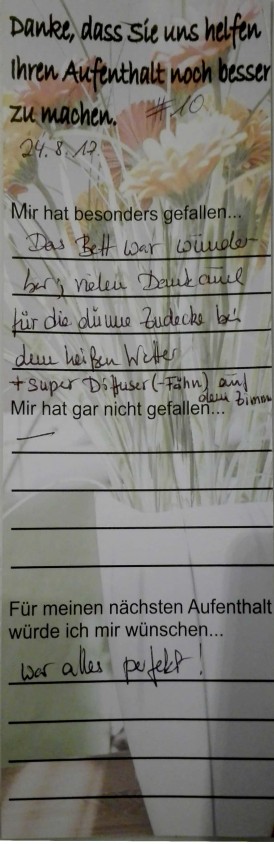 Danke, dass Sie uns helfen
Ihren Aufenthalt noch besser
zu machen. #10
24.8.17.
Mir hat besonders gefallen...
Das Bett war wunder-
bar, vielen Dank auch
für die dünne Zudecke bei
dem heißen Wetter
+ Super Diffuser (-Föhn) auf
dem Zimm
Mir hat gar nicht gefallen...
—
Für meinen nächsten Aufenthalt
würde ich mir wünschen...
war alles perfekt!